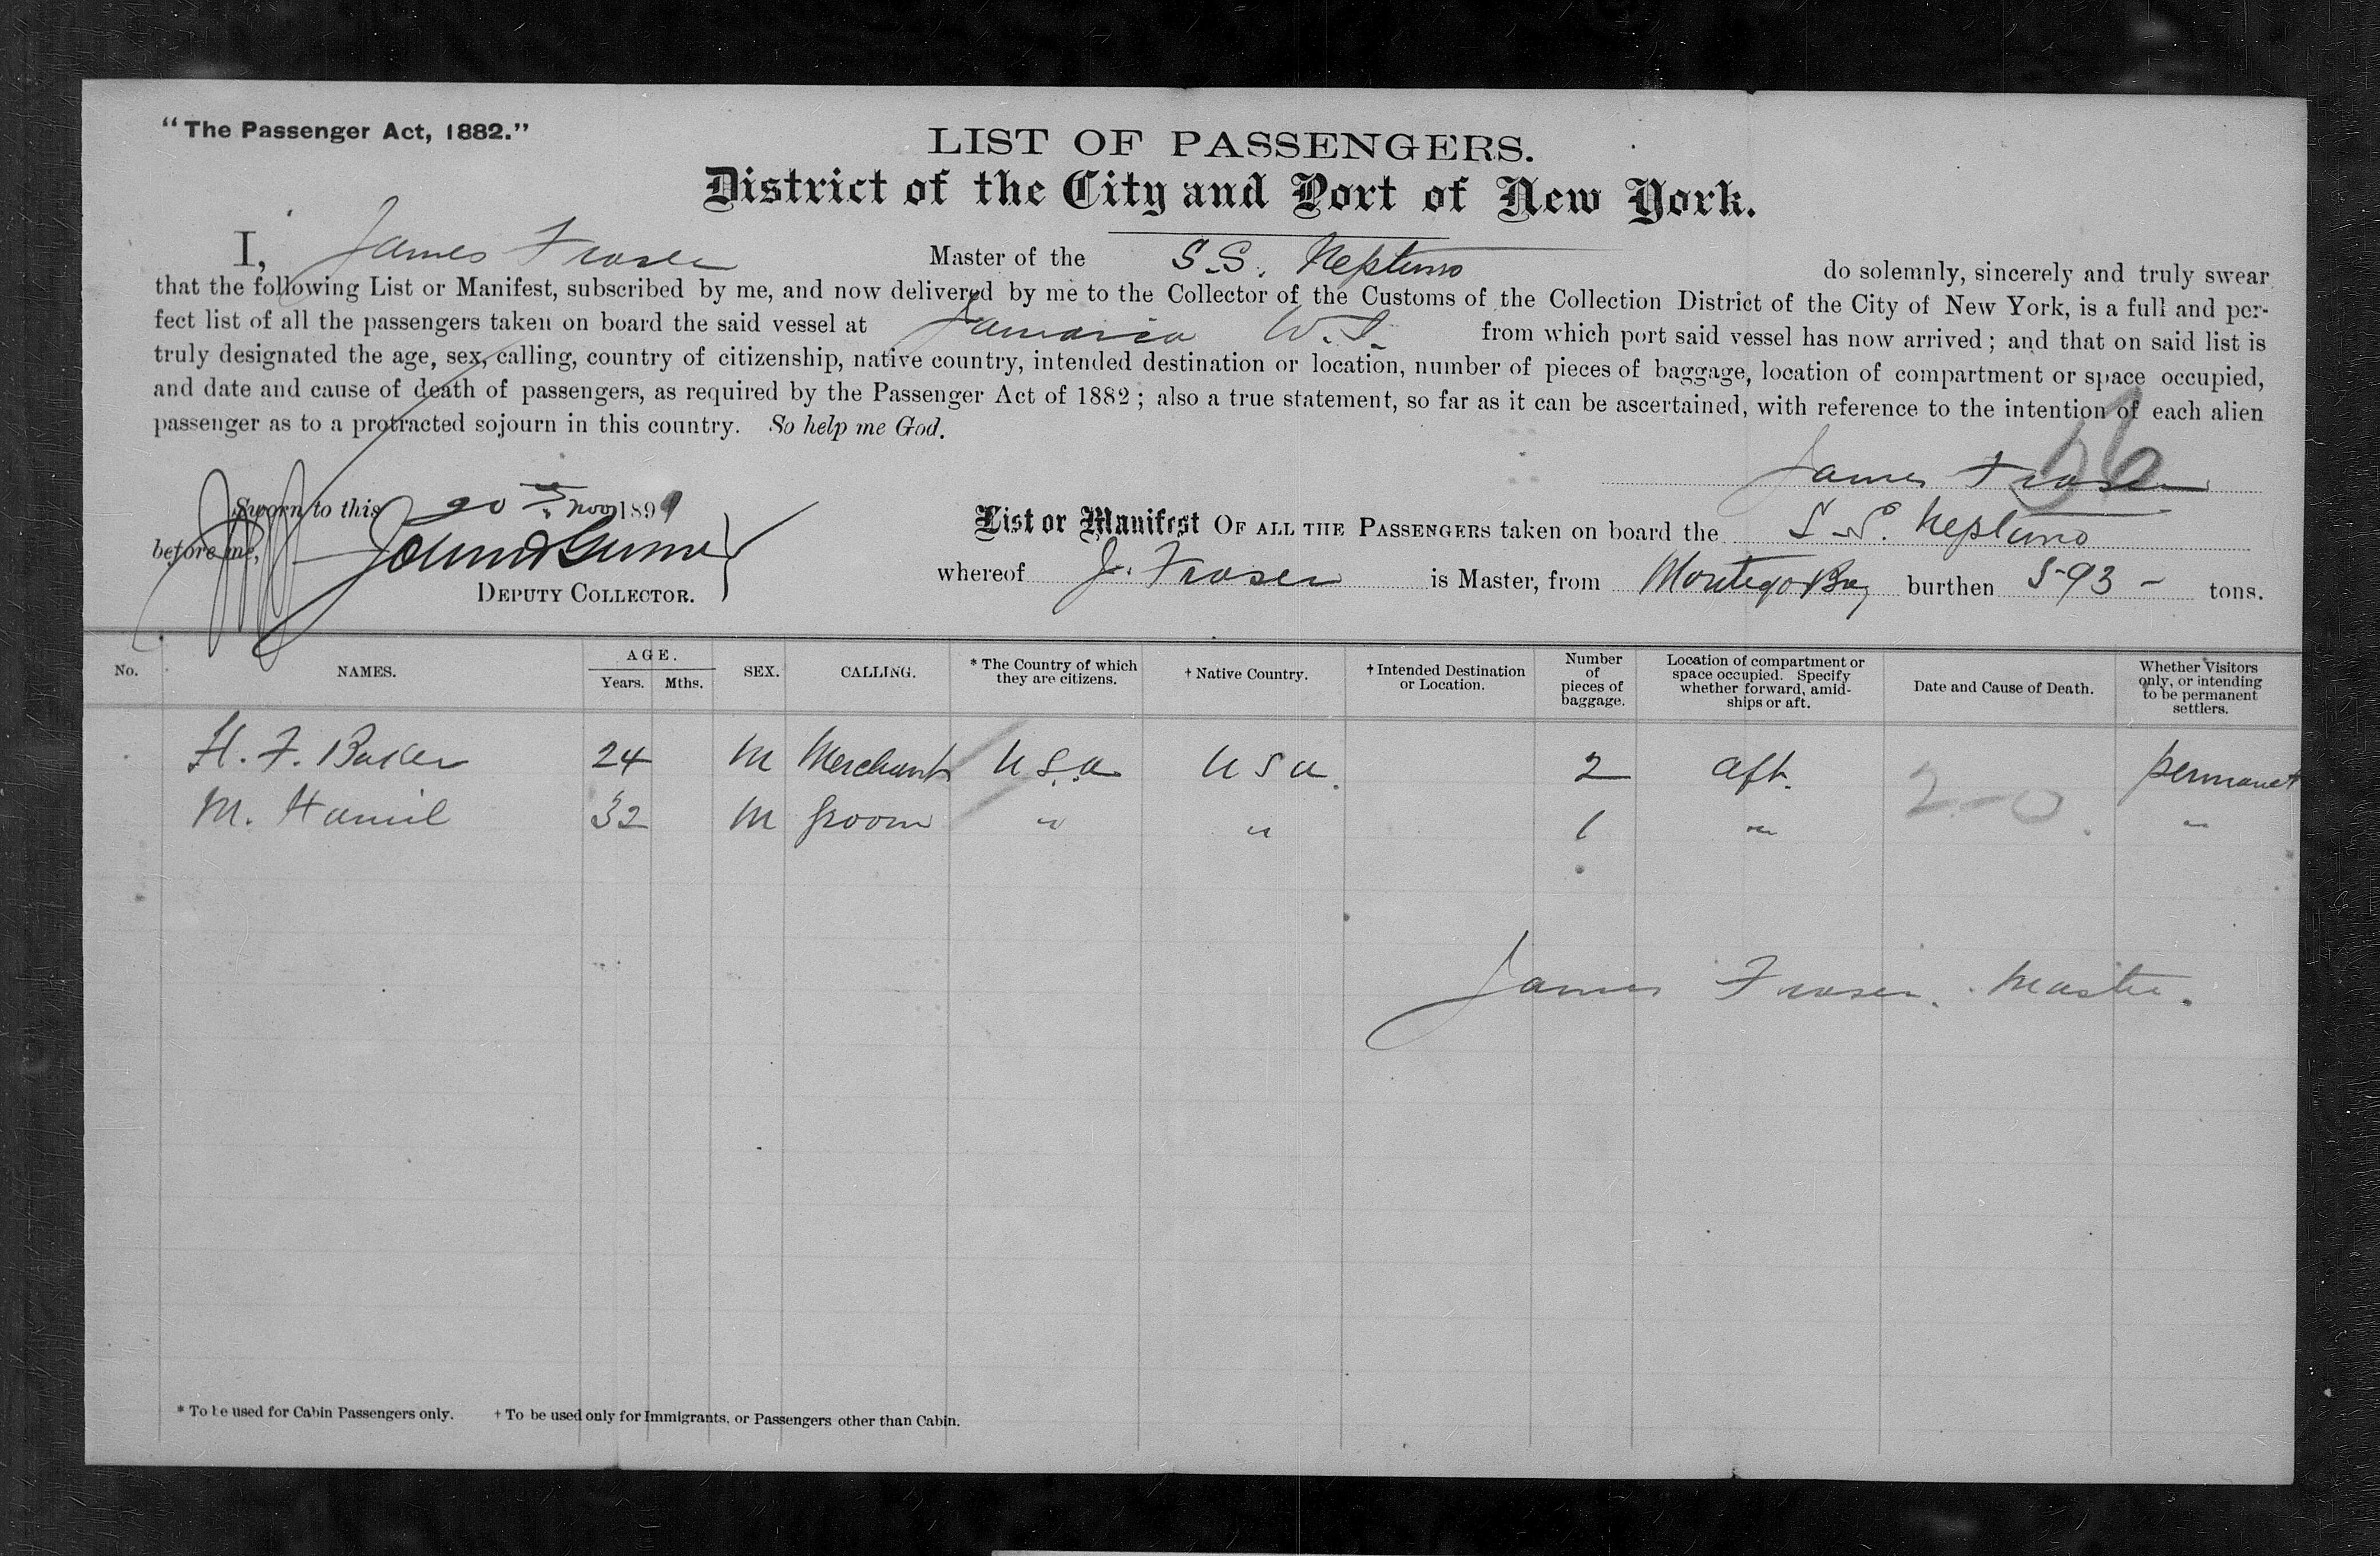 "The Passenger Act, 1882."
LIST OF PASSENGERS.
District of the City and Port of New York.
I, James Fraser Master of the S.S. Neptuno do solemnly, sincerely and truly swear
that the following List or Manifest, subscribed by me, and now delivered by me to the Collector of the Customs of the Collection District of the City of New York, is a full and per-
fect list of all the passengers taken on board the said vessel at Jamaica W.I. from which port said vessel has now arrived; and that on said list is
truly designated the age, sex, calling, country of citizenship, native country, intended destination or location, number of pieces of baggage, location of compartment or space occupied,
and date and cause of death of passengers, as required by the Passenger Act of 1882; also a true statement, so far as it can be ascertained, with reference to the intention of each alien
passenger as to a protracted sojourn in this country. So help me God.
James Fraser
Sworn to this 20 Nov 1899
before me,
DEPUTY COLLECTOR.
List or Manifest OF ALL THE PASSENGERS taken on board the S.S. Neptuno
whereof J. Fraser is Master, from Montego Bay burthen 593 - tons.
No. NAMES. AGE. Years. Mths. SEX. CALLING. * The Country of which they are citizens. † Native Country. † Intended Destination or Location. Number of pieces of baggage. Location of compartment or space occupied. Specify whether forward, amid-ships or aft. Date and Cause of Death. Whether Visitors only, or intending to be permanent settlers.
H. F. Baker 24 M Merchant U.S.a U S a. 2 aft. permanet
M. Hamil 32 M Groom " " 1 " "
2-0
James Fraser. Master.
* To be used for Cabin Passengers only. † To be used only for Immigrants, or Passengers other than Cabin.